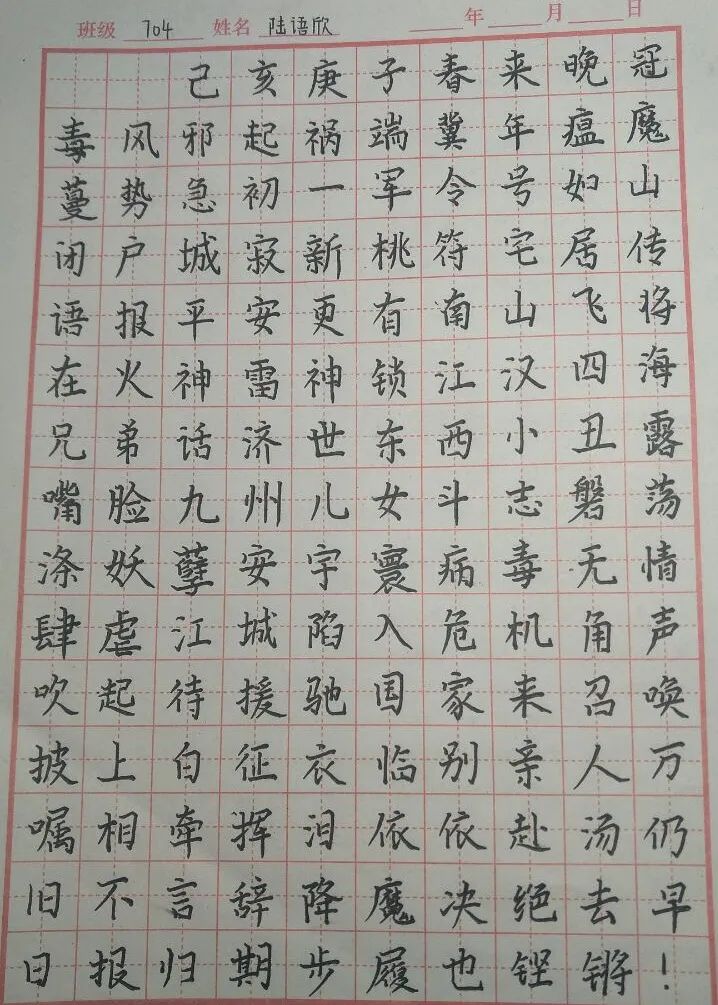 班级 704 姓名 陆语欣 年 月 日
己亥庚子春来晚冠
毒风邪起祸端冀年瘟魔
蔓势急初一军令号如山
闭户城寂新桃符宅居传
语报平安更有南山飞将
在火神雷神锁江汉四海
兄弟话济世东西小丑露
嘴脸九州儿女斗志磐荡
涤妖孽安宇寰病毒无情
肆虐江城陷入危机角声
吹起待援驰国家来召唤
披上白征衣临别亲人万
嘱相牵挥泪依依赴汤仍
旧不言辞降魔决绝去早
日报归期步履也铿锵！